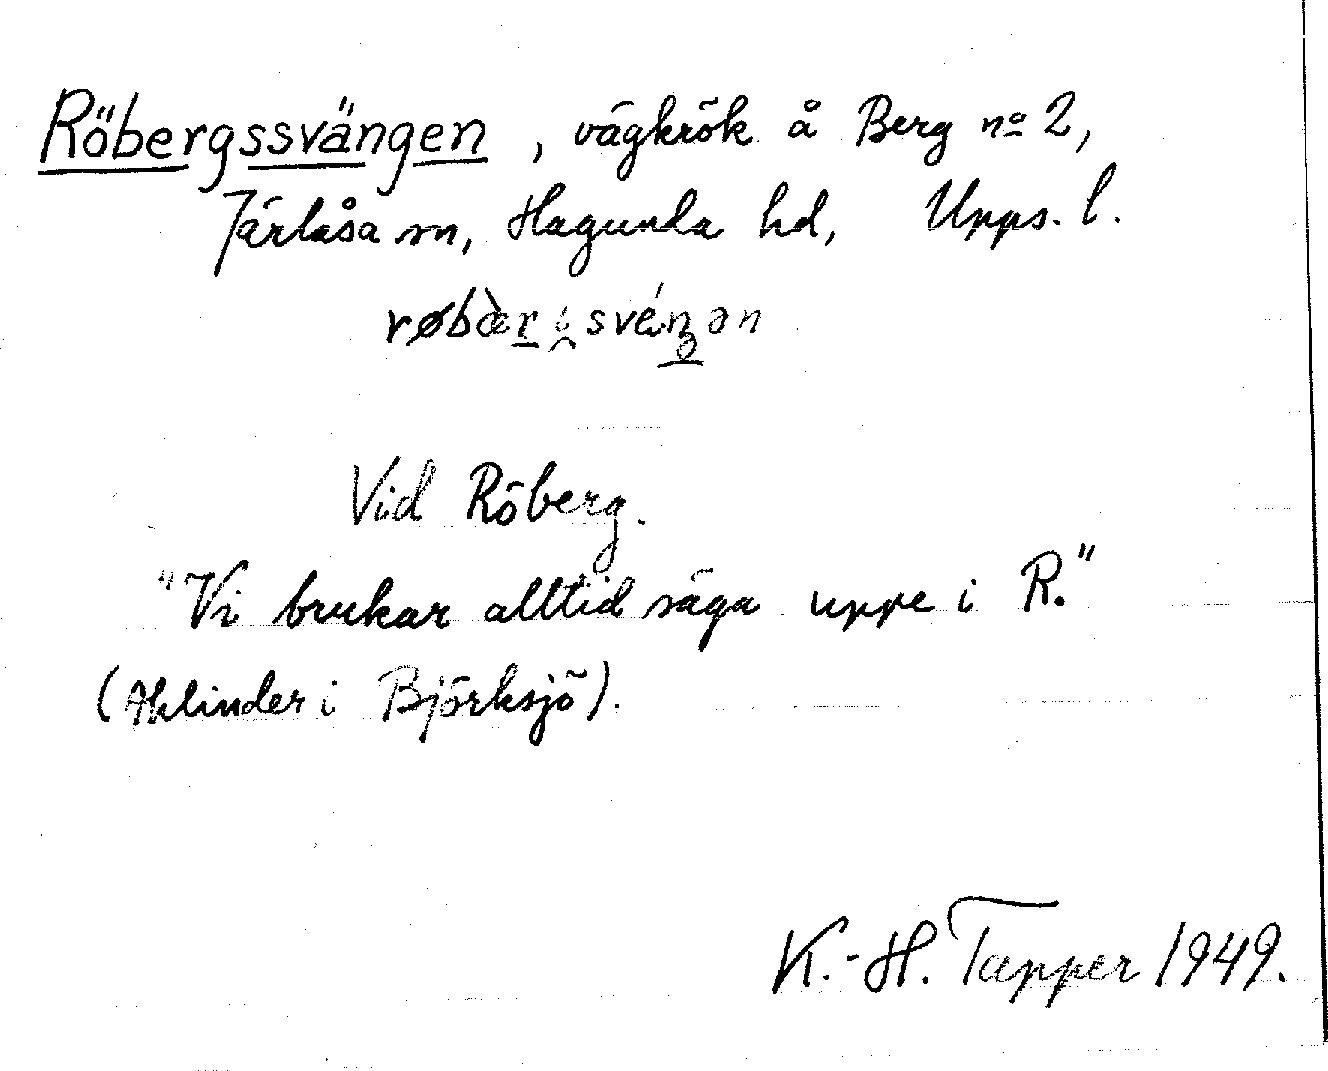 Röbergssvängen, vägkrök å Berg nº 2,
Järlåsa sn, Hagunda hd, Upps. l.
Vid Röberg.
"Vi brukar alltid säga uppe i R."
(Ahlinder i Björksjö).
K.-H. Tapper 1949.